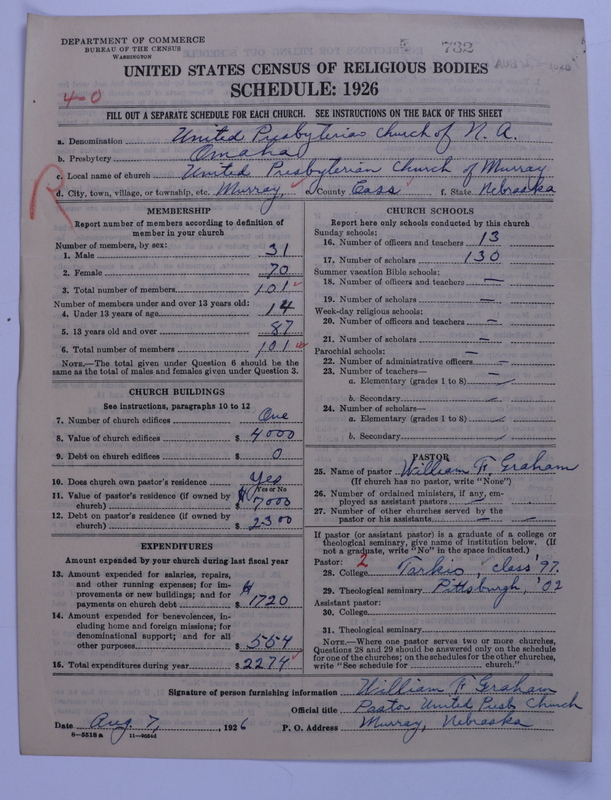 DEPARTMENT OF COMMERCE
BUREAU OF THE CENSUS
WASHINGTON
732
UNITED STATES CENSUS OF RELIGIOUS BODIES
SCHEDULE: 1926
4-0
FILL OUT A SEPARATE SCHEDULE FOR EACH CHURCH. SEE INSTRUCTIONS ON THE BACK OF THIS SHEET
a. Denomination United Presbyterian Church of N. A.
b. Presbytery Omaha
c. Local name of church United Presbyterian Church of Murray
d. City, town, village, or township, etc. Murray, County Cass f. State Nebraska
MEMBERSHIP
Report number of members according to definition of
member in your church
Number of members, by sex:
1. Male 31
2. Female 70
3. Total number of members 101
Number of members under and over 13 years old:
4. Under 13 years of age 14
5. 13 years old and over 87
6. Total number of members 101
NOTE.—The total given under Question 6 should be the
same as the total of males and females given under Question 3.
CHURCH BUILDINGS
See instructions, paragraphs 10 to 12
7. Number of church edifices One
8. Value of church edifices $ 4000
9. Debt on church edifices $ 0
10. Does church own pastor's residence Yes
Yes or No
11. Value of pastor's residence (if owned by
church) $ 7000
12. Debt on pastor's residence (if owned by
church) $ 2300
EXPENDITURES
Amount expended by your church during last fiscal year
13. Amount expended for salaries, repairs,
and other running expenses; for im-
provements or new buildings; and for
payments on church debt $ 1720
14. Amount expended for benevolences, in-
cluding home and foreign missions; for
denominational support; and for all
other purposes $ 554
15. Total expenditures during year $ 2274
CHURCH SCHOOLS
Report here only schools conducted by this church
Sunday schools:
16. Number of officers and teachers 13
17. Number of scholars 130
Summer vacation Bible schools:
18. Number of officers and teachers —
19. Number of scholars —
Week-day religious schools:
20. Number of officers and teachers —
21. Number of scholars —
Parochial schools: —
22. Number of administrative officers —
23. Number of teachers—
a. Elementary (grades 1 to 8) —
b. Secondary —
24. Number of scholars—
a. Elementary (grades 1 to 8) —
b. Secondary —
PASTOR
25. Name of pastor William F. Graham
(If church has no pastor, write "None")
26. Number of ordained ministers, if any, em-
ployed as assistant pastors —
27. Number of other churches served by the
pastor or his assistants —
If pastor (or assistant pastor) is a graduate of a college or
theological seminary, give name of institution below. (If
not a graduate, write "No" in the space indicated.)
Pastor: 2
28. College Tarkio, class '97.
29. Theological seminary Pittsburgh, '02
Assistant pastor:
30. College
31. Theological seminary
NOTE.—Where one pastor serves two or more churches,
Questions 28 and 29 should be answered only on the schedule
for one of the churches; on the schedules for the other churches,
write "See schedule for church."
Signature of person furnishing information William F Graham
Official title Pastor United Presb Church
Date Aug. 7, 1926 P. O. Address Murray, Nebraska
8-5518a